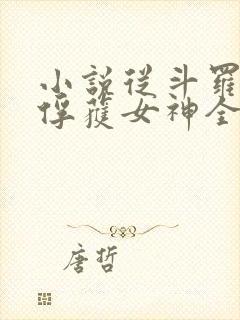 小說從斗羅
俘獲女神全
唐哲